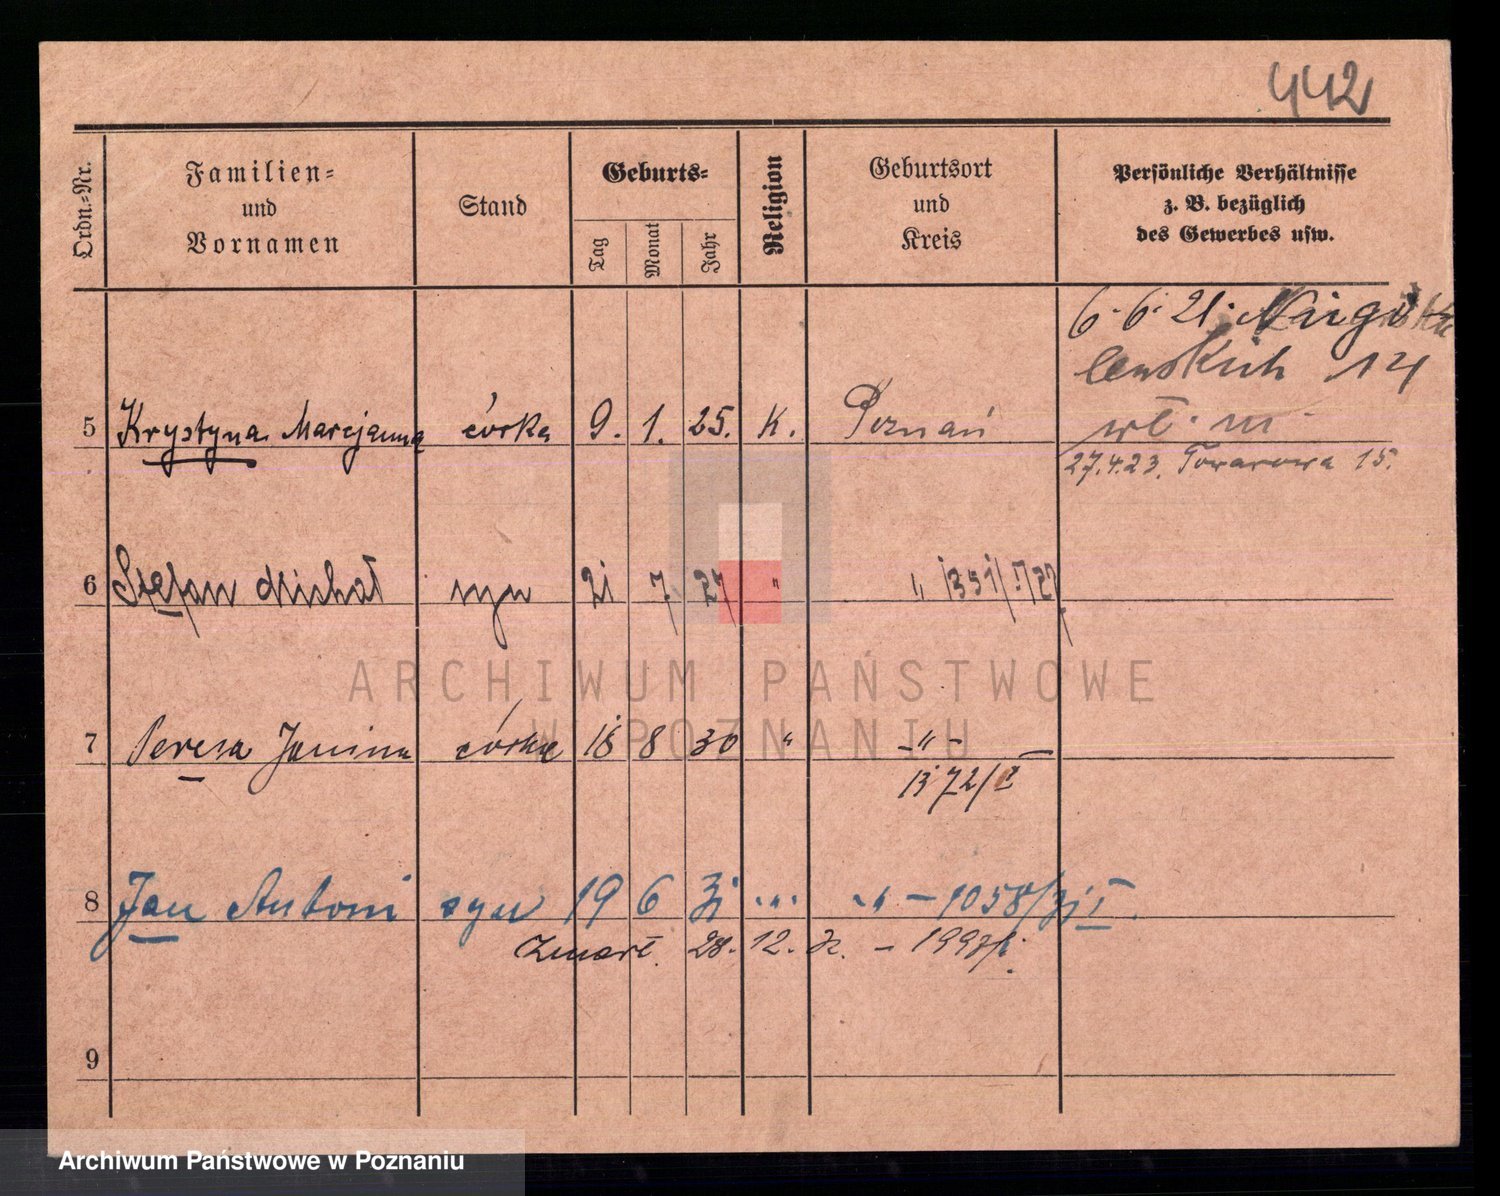 442
Ordn.-Nr.
Familien-
und
Vornamen
Stand
Geburts-
Tag
Monat
Jahr
Religion
Geburtsort
und
Kreis
Persönliche Verhältnisse
z. B. bezüglich
des Gewerbes usw.
6.6.21.
lenskich 14
5 Krystyna Marcjanna córka 9. 1. 25. K. Poznań wł. m.
27.4.23. Towarowa 15.
6 Stefan Michał syn 21 7 27 " " 1351/
7 Teresa Janina córka 18 8 30 " -"-
1372/I
8 Jan Antoni syn 19 6 31 " " - 1058/31 I.
Zmarł. 28. 12. - 1997
9
ARCHIWUM PAŃSTWOWE
W POZNANIU
Archiwum Państwowe w Poznaniu